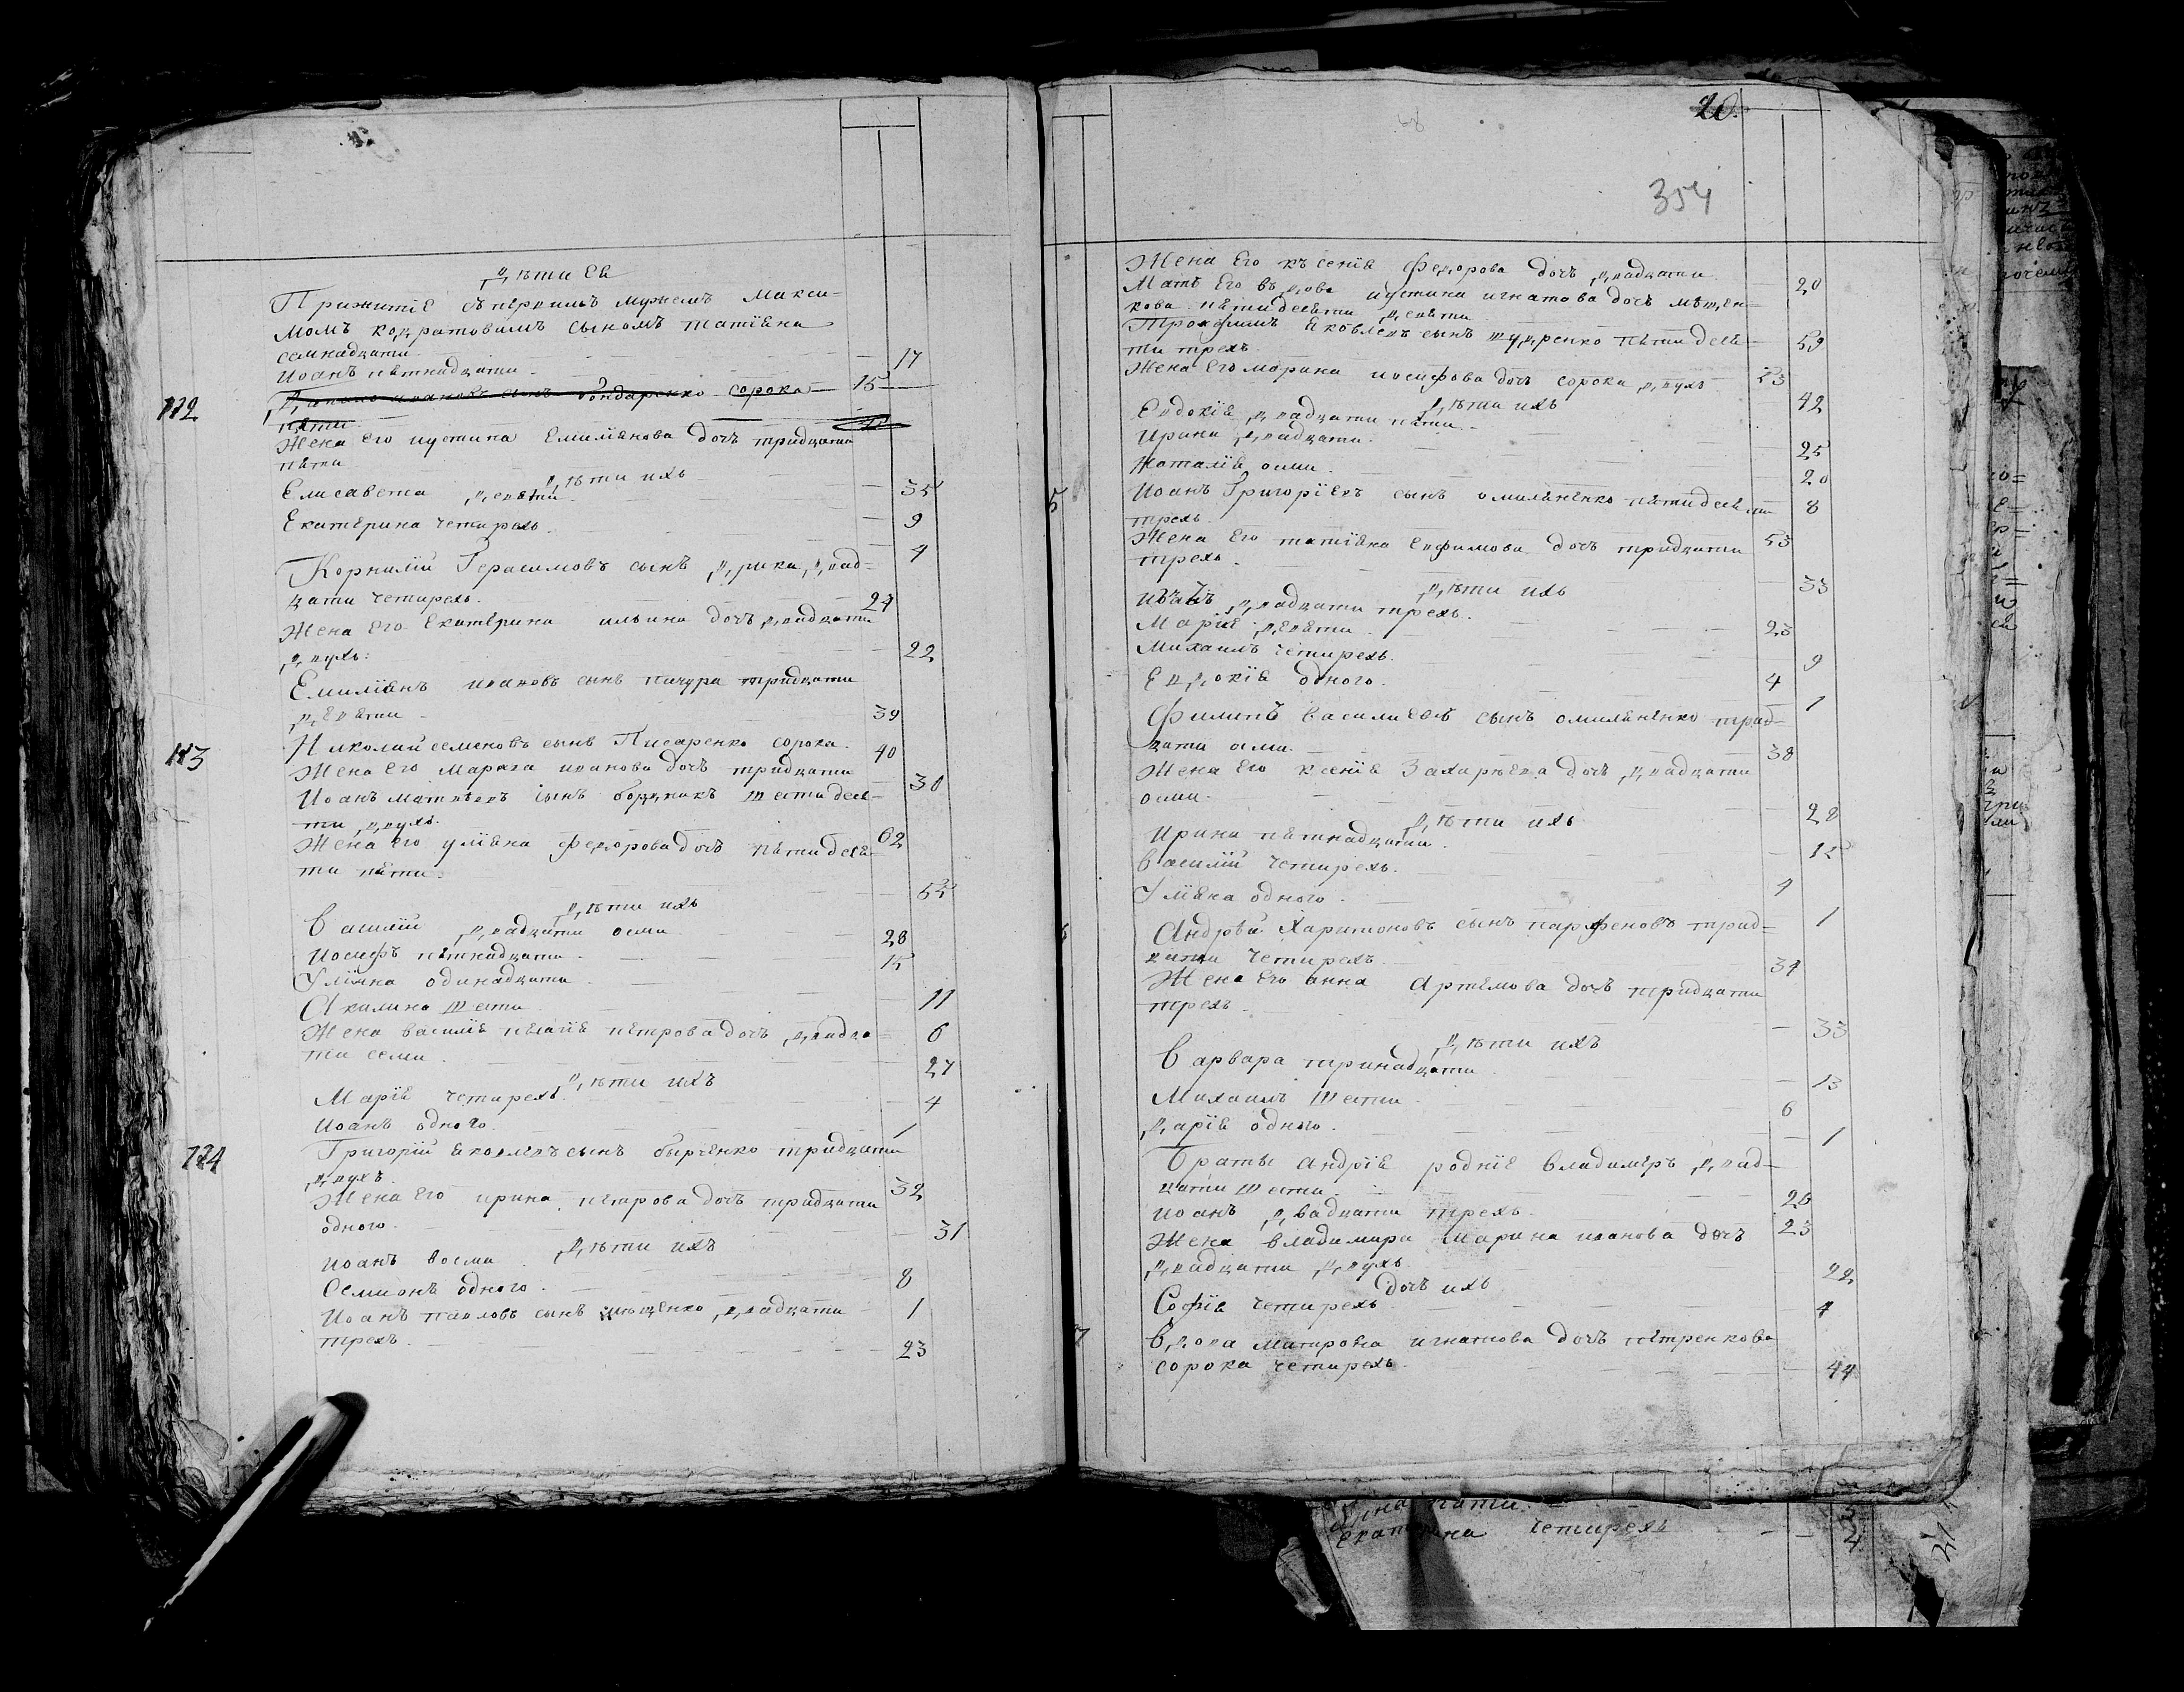 дѣти ея
Прижитіе съ первимъ мужемъ Макси-
момъ кодратовимъ сыномъ татіяна
семнадцати 17
Иоанъ пятнадцати 15
112 сынъ бондаренко сорока
пяти
Жена его иустина Емилянова дочъ тридцати
пяти 35
дѣти ихъ
Елисавета девяти 9
Екатерина четирехъ 4
Корнилій Герасимовъ сынъ дрига двад-
цати четирехъ 24
Жена его Екатерина ильина дочъ двадцати
двухъ 22
Емиліянъ ивановъ сынъ пачура тридцати
девяти 39
113 Николай семеновъ сынъ Писаренко сорока 40
Жена его Марига иванова дочъ тридцати 30
Иоанъ матвѣевъ сынъ бодникъ шестидеся-
ти двухъ 62
Жена его уліяна федорова дочъ пятидеся-
ти пяти 55
дѣти ихъ
Василій двадцати осми 28
Иосифъ пятнадцати 15
Уліяна одинадцати 11
Акилина шести 6
Жена василія пелагія петрова дочъ двадца-
ти семи 27
дѣти ихъ
Марія четирехъ 4
Иоанъ одного 1
114 Григорій яковлевъ сынъ бырченко тридцати
двухъ 32
Жена его ирина петрова дочъ тридцати
одного 31
дѣти ихъ
Иоанъ восми 8
Семионъ одного 1
Иоанъ павловъ сынъ двадцати
трехъ 23
20
354
Жена его късенія федорова дочъ двадцати 20
Мать его въдова иустина игнатова дочъ мѣщен-
кова пятидесяти девяти 59
Трохфимъ яковлевъ сынъ шудренко пятидеся-
ти трехъ 53
Жена его марина иосифова дочъ сорока двухъ 42
дѣти ихъ
Евдокія двадцати пяти 25
Ирина двадцати 20
Наталія осми 8
5 Иоанъ Григоріевъ сынъ омиляненко пятидесяти
трехъ 53
Жена его татіяна евфимова дочъ тридцати
трехъ 33
дѣти ихъ
иванъ двадцати трехъ 23
Марія девяти 9
Михаилъ четирехъ 4
Евдокія одного 1
Филипъ василиевъ сынъ омиляненко трид-
цати осми 38
Жена его ксенія Захарѣева дочъ двадцати
осми 28
дѣти ихъ
Ирина пятнадцати 15
василій четирехъ 4
Уліяна одного 1
Андрѣй Харитоновъ сынъ парфеновъ трид-
цати четирехъ 34
Жена его анна Артемова дочъ тридцати
трехъ 33
дѣти ихъ
Варвара тринадцати 13
Михаилъ шести 6
Дарія одного 1
Братьы андрія родніе владимеръ двад-
цати шести 26
Иоанъ двадцати трехъ 23
Жена владимира Марина иванова дочъ
двадцати двухъ 22
дочъ ихъ
Софія четирехъ 4
7 Вдова матрона игнатова дочъ петренкова
сорока четирехъ 44
пяти
четирехъ 4